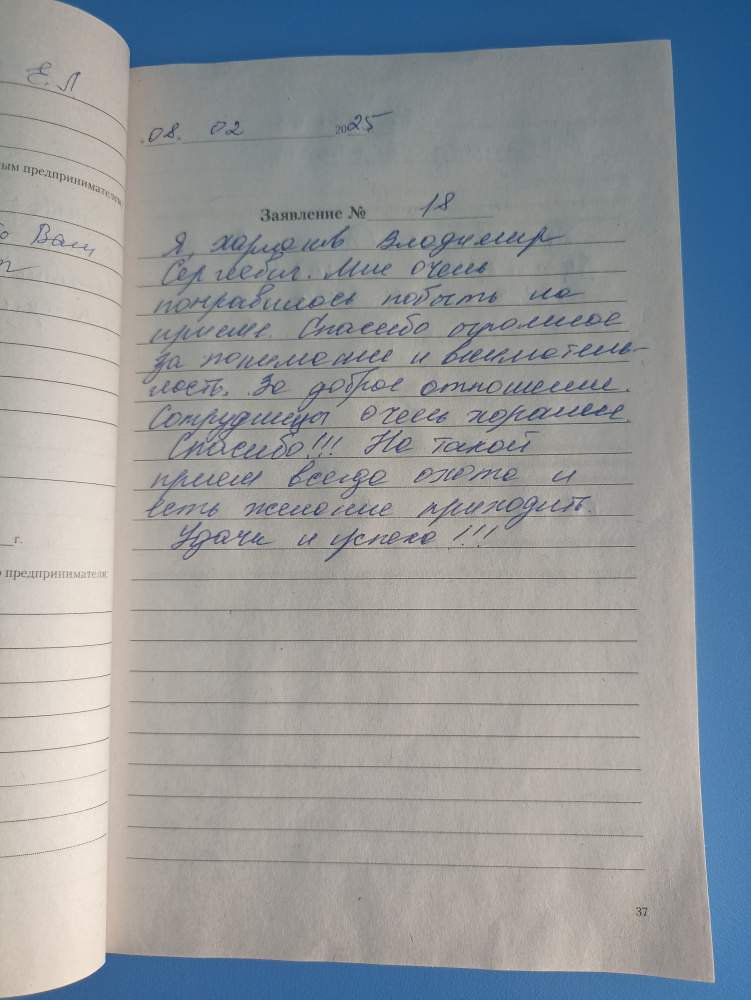 Е. Л
ым предпринимателем
Вам
г.
предпринимателя:
08. 02 2025
Заявление № 18
Я, Владимир
Сергеевич. Мне очень
понравилось побыть на
приеме. Спасибо огромное
за понимание и вниматель-
ность. За доброе отношение.
Сотрудницы очень хорошие.
Спасибо!!! На такой
прием всегда охота и
есть желание приходить.
Удачи и успеха!!!
37